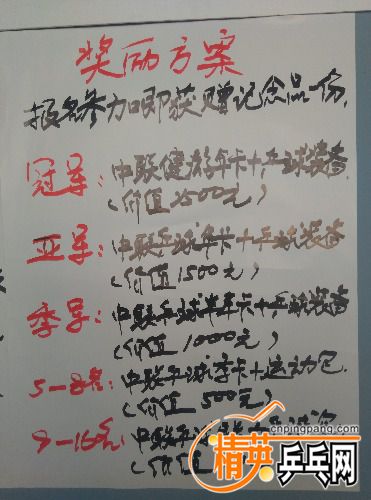 奖励方案
报名参加即获赠记念品一份,
冠军: 中联健游年卡+乒球装备
(价值2500元)
亚军: 中联乒球年卡+乒球装备
(价值1500元)
季军: 中联乒球半年卡+乒球装备
(价值1000元)
5-8名: 中联乒球季卡+运动包
(价值500元)
9-16名: 中联乒
(价值
cnpingpang.com
精英乒乓网